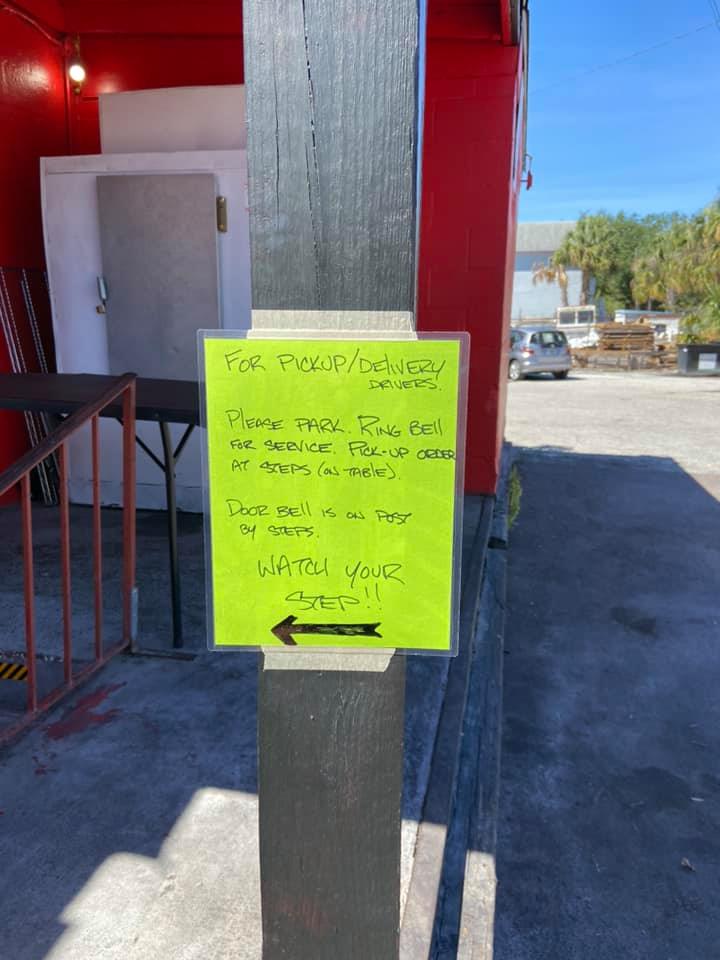 FOR PICKUP/DELIVERY
DRIVERS.
PLEASE PARK. RING BEll
FOR SERVICE. PICK-UP ORDER
AT STEPS (ON TABLE).
DOOR BEll IS ON POST
BY STEPS.
WATCH YOUR
STEP!!